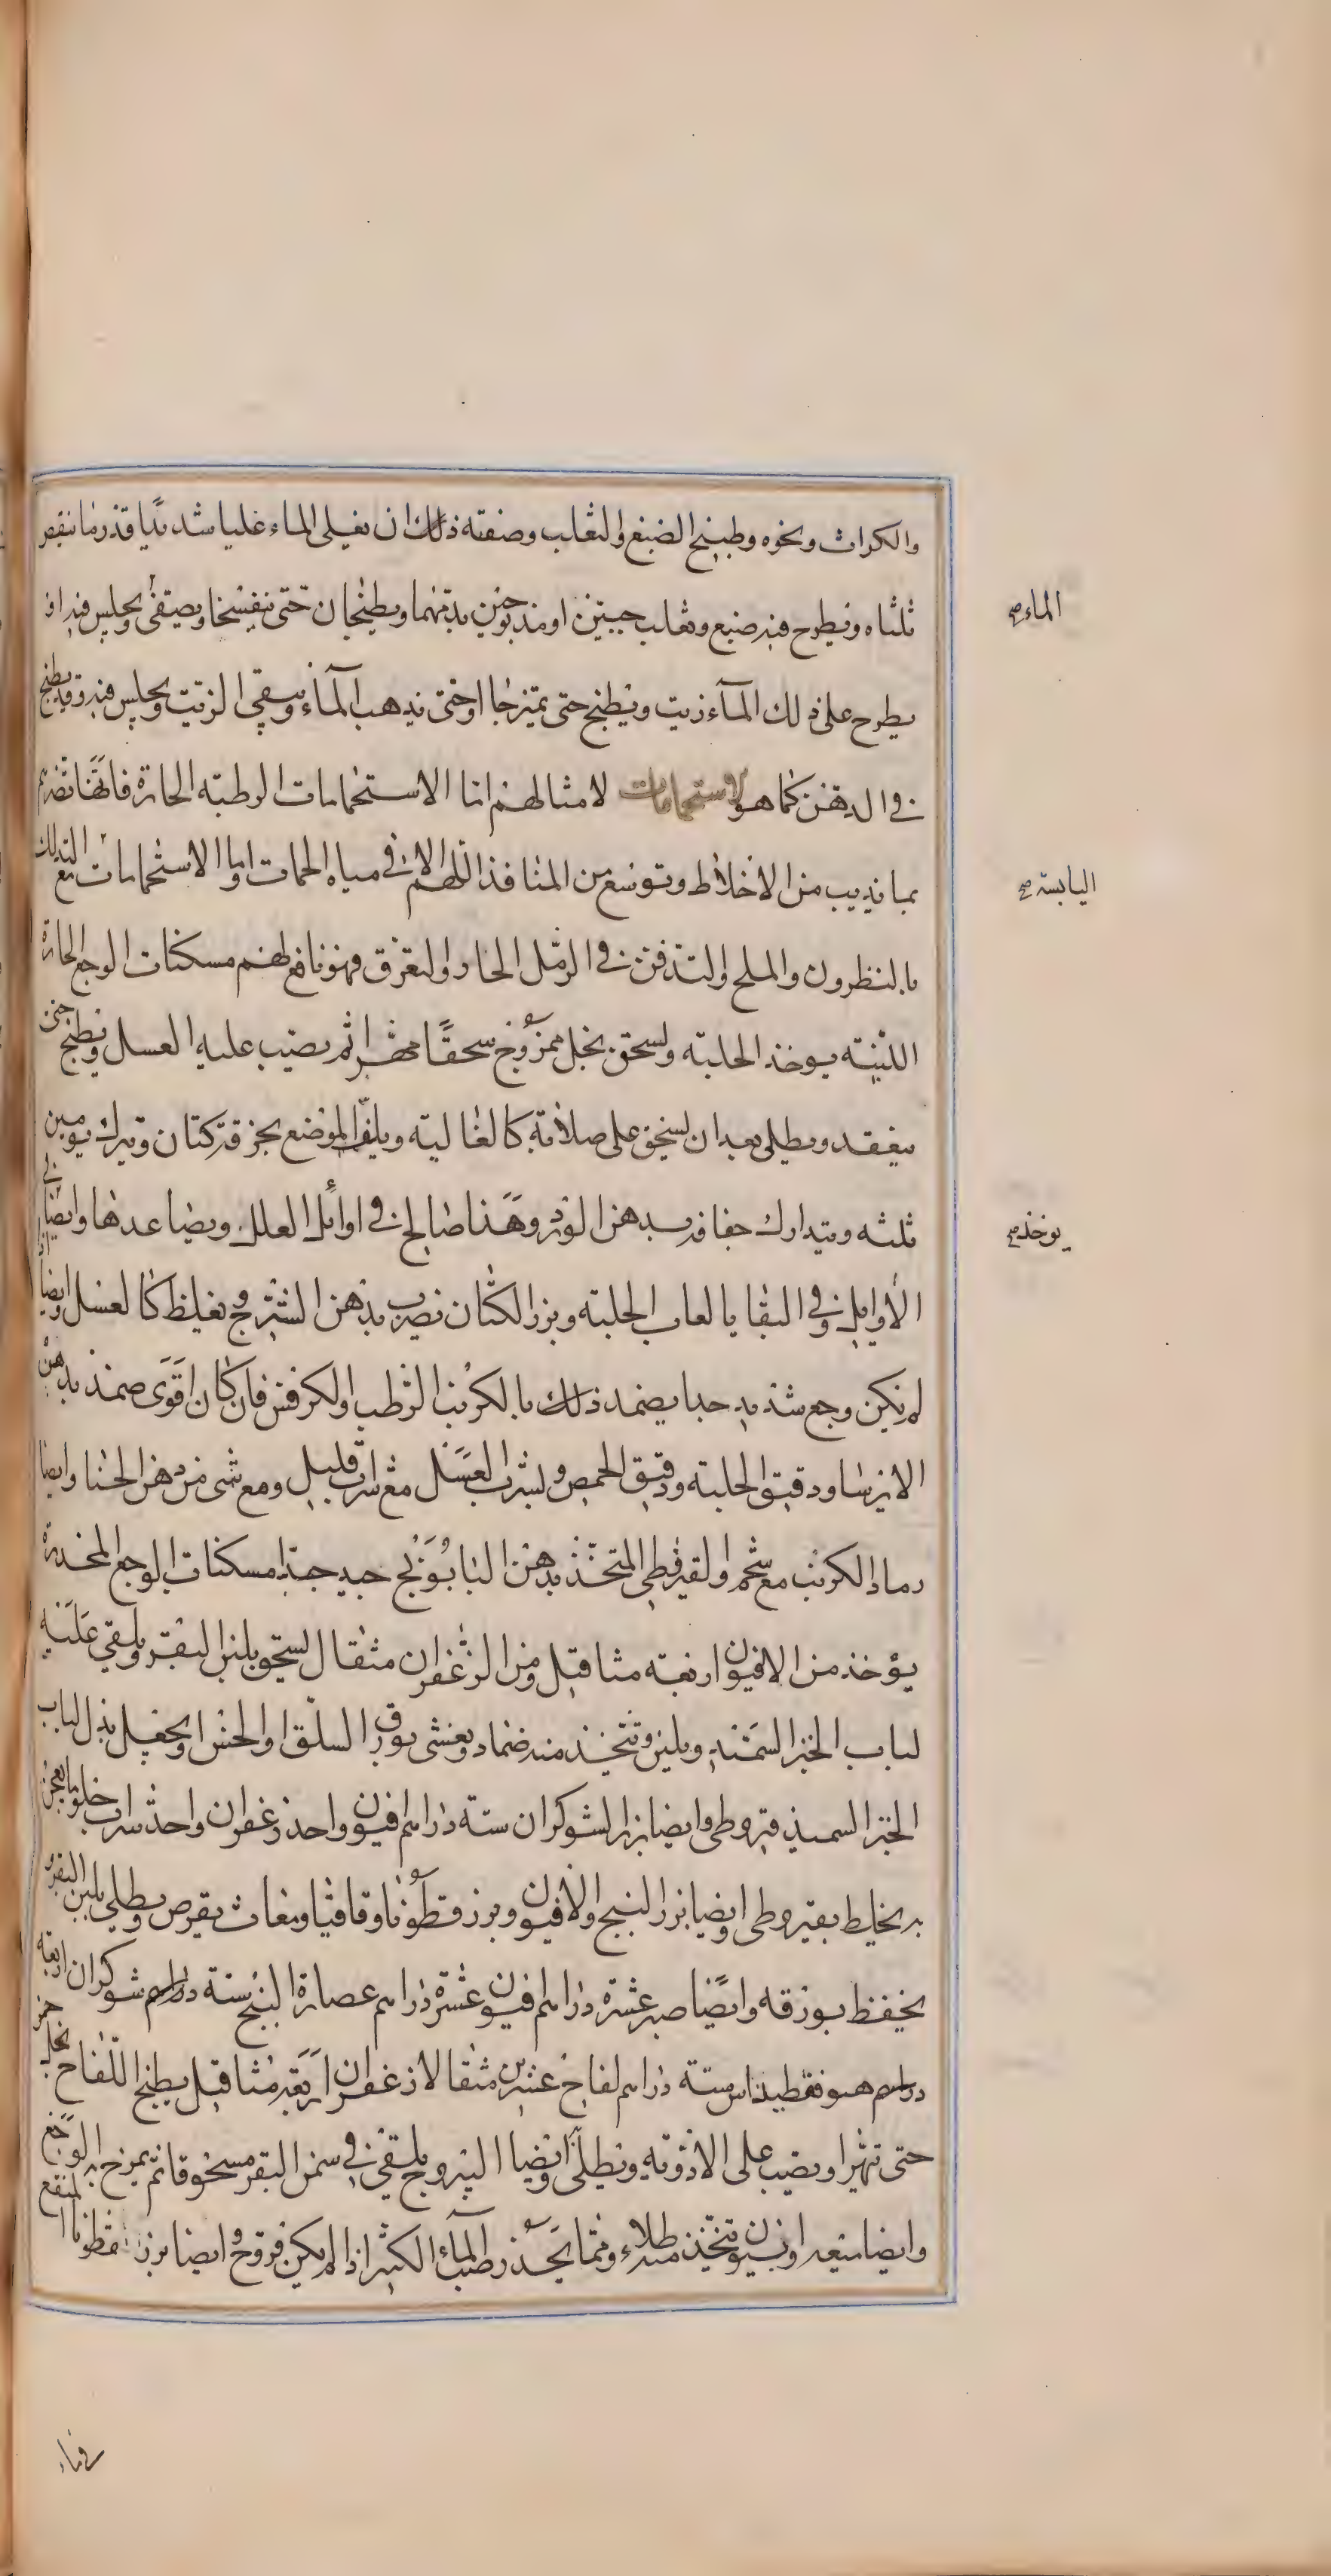 والكراث ونحوه وطبيخ الضبع والثعلب وصفته ذلك ان يغلى الماء غليا شديدا قدر ما ينقص
ثلثاه ويطرح فيه ضبع وثعلب حيين او مذبوحين بدمهما ويطبخان حتى يتفسخا ويصفى ويجلس فيه او
الماء صح
يطرح على ذلك الماء زيت ويطبخ حتى يمتزجا او حتى يذهب الماء ويبقى الزيت ويجلس فيه وقد يطبخ
في الدهن كما هو الاستحمامات لامثالهم اما الاستحمامات الرطبة الحارة فانها تضرهم
بما تذيب من الاخلاط وتوسع من المنافذ اللهم الا في مياه الحمات واما الاستحمامات مع التدلك
اليابسة صح
بالنطرون والملح والتدفن في الرمل الحار والتعرق فهو نافع لهم مسكنات الوجع الحارة
اللينة يوخذ الحلبة ولسحق بخل ممزوج سحقا مهرا ثم يصب عليه العسل ويطبخ حتى
ينعقد ويطلى بعد ان لسحق على صلاية كالغالية ويلف الموضع بخرقة كتان ويترك يومين
ثلثه ويتدارك جفافه بدهن الورد وهذا صالح في اوائل العلل وبصاعدها وايضا في
يوخذ صح
الاوايل وفي البقايا لعاب الحلبة وبزر الكتان نضرب بدهن الشيرج ويغلظ كالعسل وايضا اذا
لم يكن وجع شديد جدا يضمد ذلك بالكرنب الرطب والكرفس فان كان اقوى ضمد بدهن
الايرسا ودقيق الحلبة ودقيق الحمص ولشراب العسل مع شراب قليل ومع شى من دهن الحنا وايضا
رماد الكرنب مع شحم والقيروطي المتخذ بدهن البابونج جيد جدا مسكنات الوجع المخدرة
يؤخذ من الافيون اربعة مثاقيل ومن الزعفران مثقال لسحق بلبن البقر ويلقى عليه
لباب الخبز السميد ويلين ويتخذ منه ضماد ويغشى بورق السلق او الخس او يجعل بدل لباب
الخبز السميد قيروطي وايضا بزر الشوكران ستة دراهم افيون واحد زعفران واحد شراب حلو ما يعجن
به يخلط بقيروطى وايضا بزر البنج والافيون وبزر قطونا واقاقيا ومغاث يقرص ويطلى بلبن البقر و
يحفظ بورقه وايضا صبر عشرة دراهم افيون عشرة دراهم عصارة البنج ستة دراهم شوكران اربعة
دراهم هيوفقطيداس ستة دراهم لفاح عشرين مثقالا زعفران اربعة مثاقيل يطبخ اللفاح بخل خمر
حتى تهرا ويصب على الادوية ويطلى وايضا اليبروج يلقى في سمن البقر مسحوقا ثم يمزج به الوجع
وايضا ميعه وافيون ويتخذ منه طلاء ومما يخدر صب الماء الكثير اذا لم يكن قروح وايضا بزر قطونا المنقع